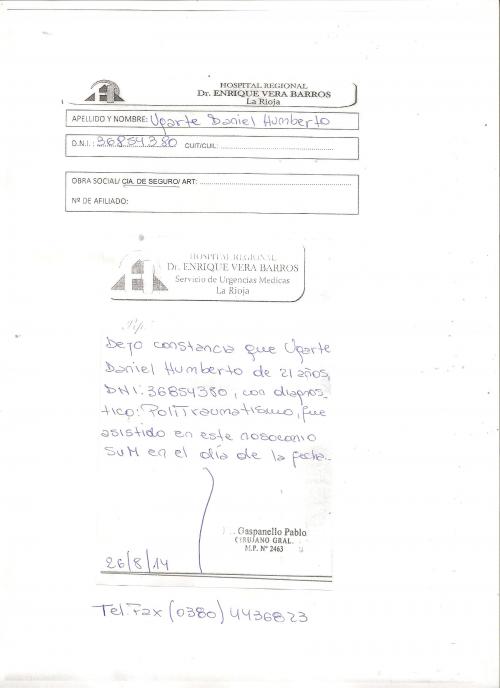 HOSPITAL REGIONAL
Dr. ENRIQUE VERA BARROS
La Rioja
APELLIDO Y NOMBRE: Ugarte Daniel Humberto
D.N.I.: 36854380 CUIT/CUIL:
OBRA SOCIAL/ CIA. DE SEGURO/ ART:
Nº DE AFILIADO:
HOSPITAL REGIONAL
Dr. ENRIQUE VERA BARROS
Servicio de Urgencias Medicas
La Rioja
Rp/
Dejo constancia que Ugarte
Daniel Humberto de 21 años,
DNI: 36854380, con diagnos-
tico: PoliTraumatismo, fue
asistido en este nosocomio
SUM en el día de la fecha.
Gaspanello Pablo
CIRUJANO GRAL.
M.P. Nº 2463
26/8/14
Tel.Fax (0380) 4436823